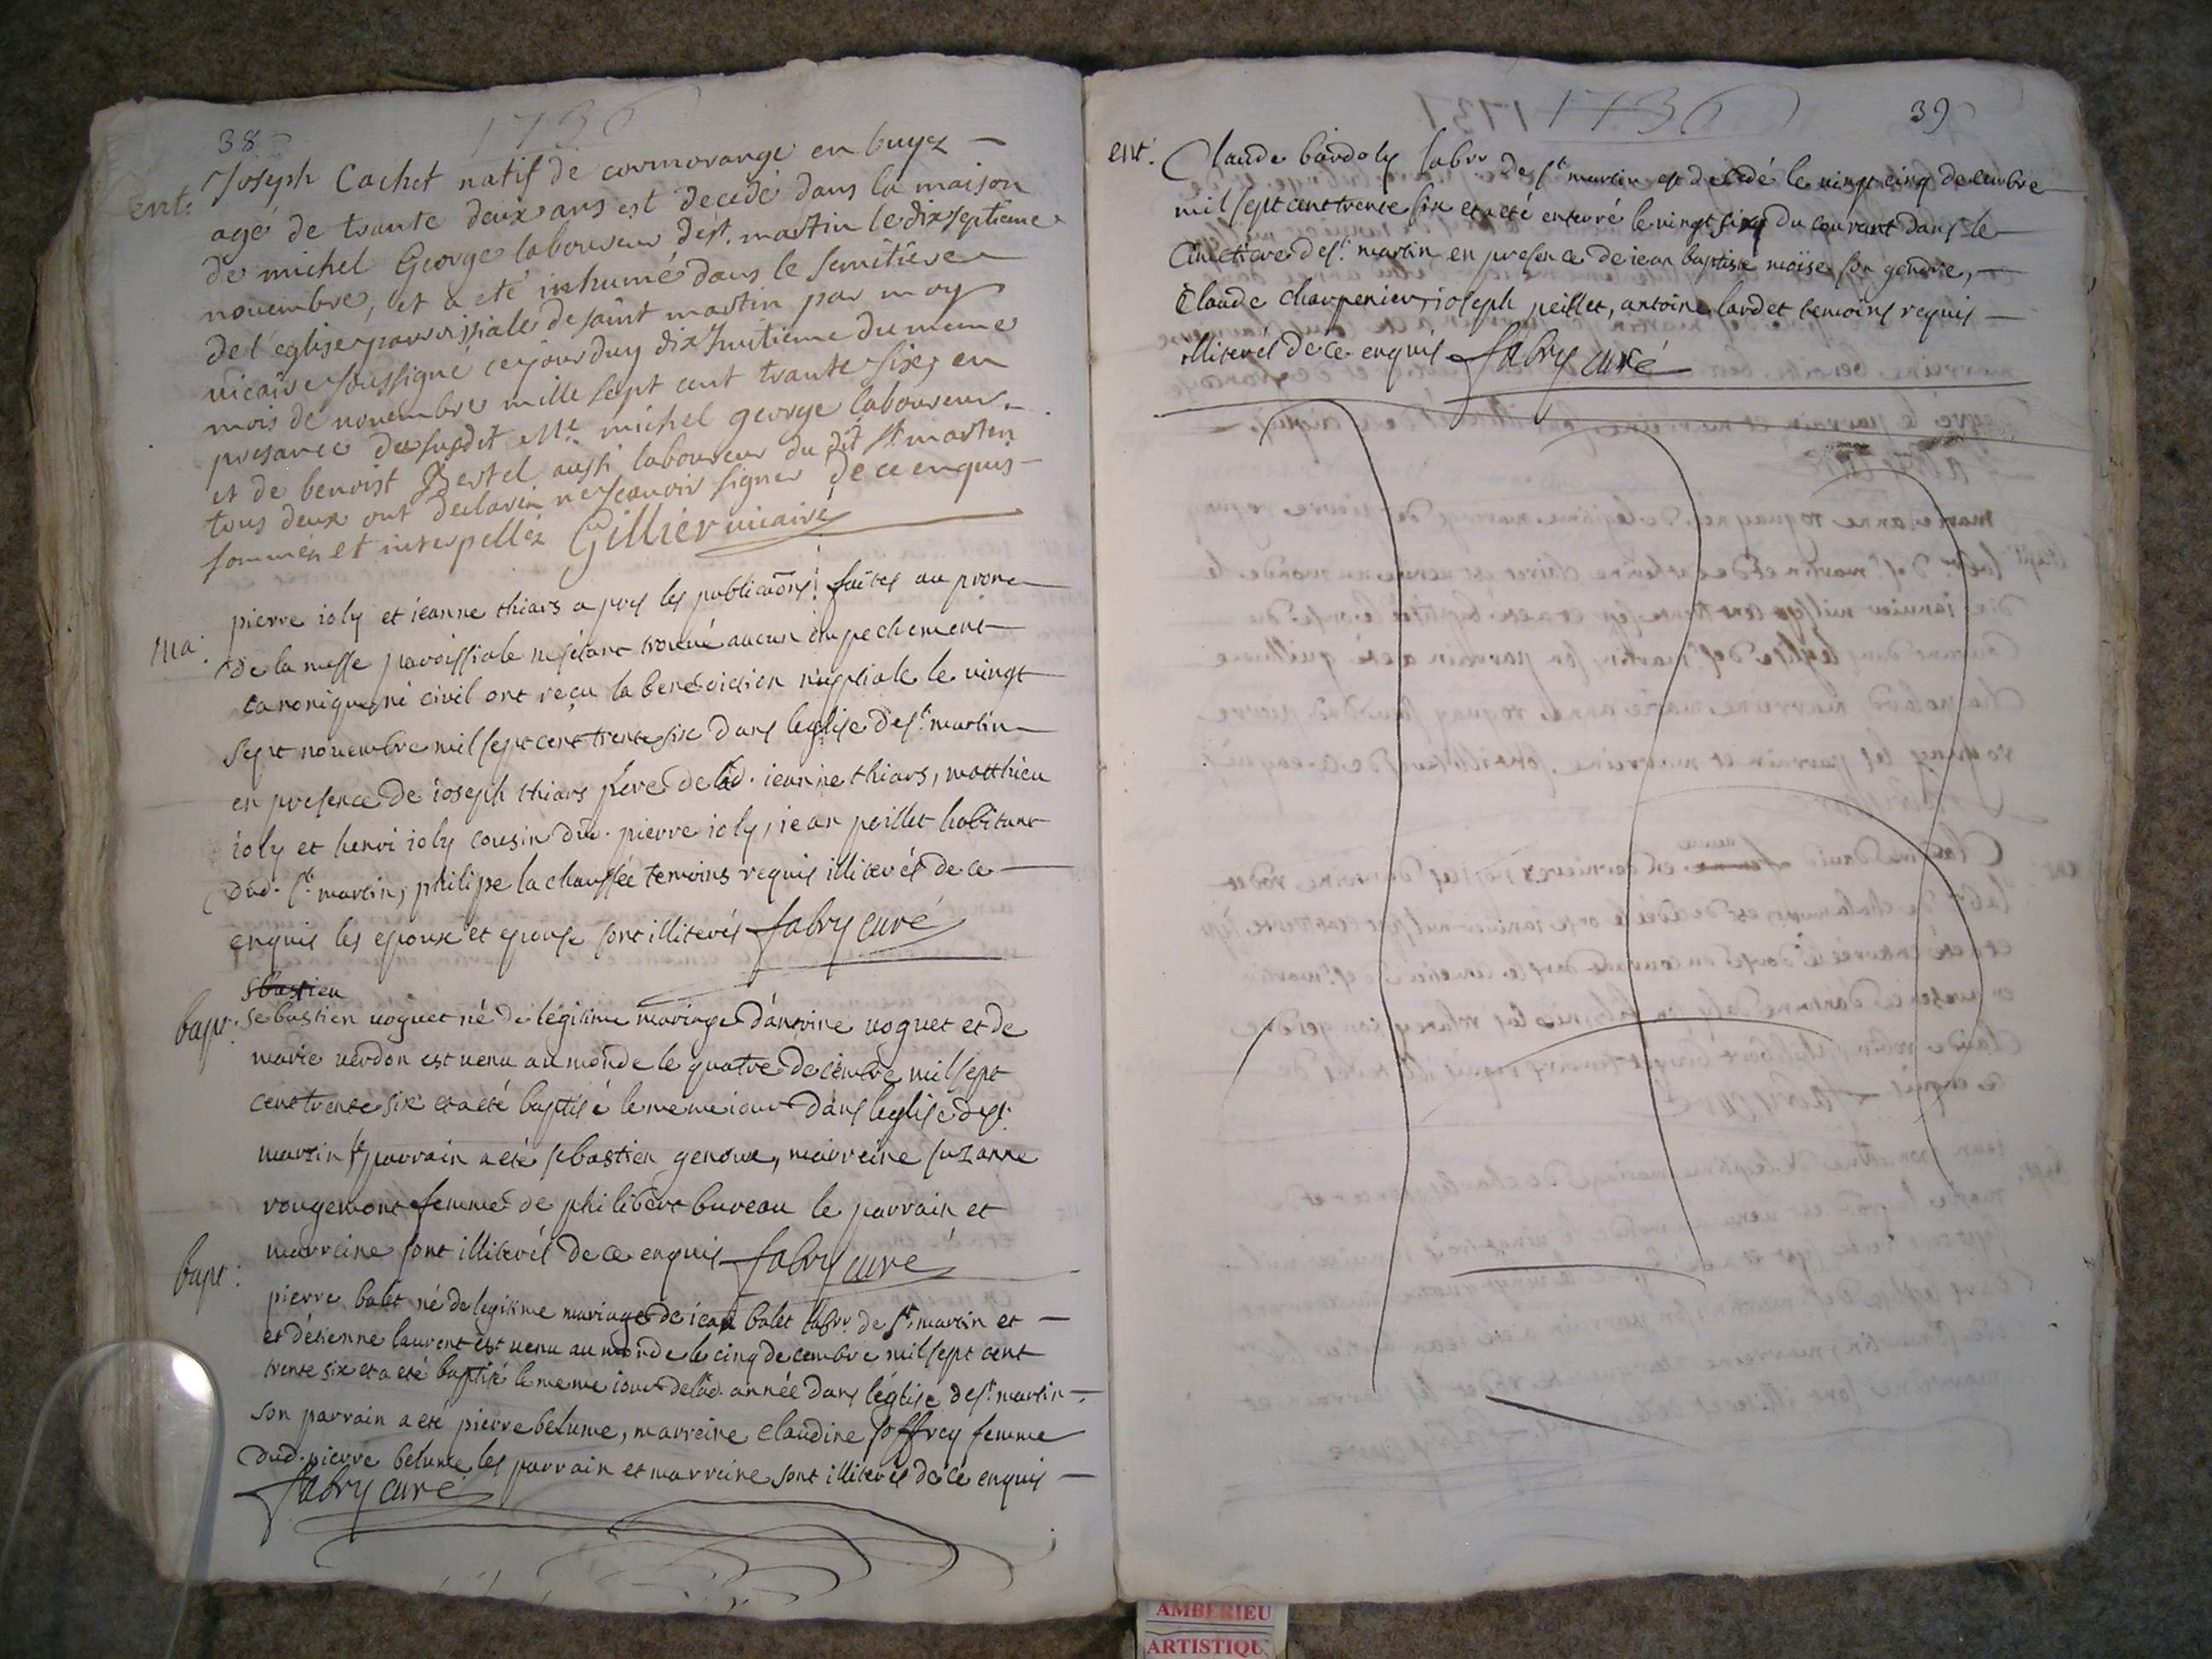 38
1736
ent.
Joseph Cachet natif de cormorange en bugez
agé de trante deux ans est decedé dans la maison
de michel George laboureur de st. martin le dixseptieme
novembre, et a eté inhumé dans le semitiere
de l'eglise parroissiale de saint martin par moy
vicaire soussigné cejourduy dix huitieme du meme
mois de novembre mille sept cent trante six, en
presance du susdit Me michel george laboureur
et de benoist Bertel aussi laboureur du dit st martin
tous deux ont declarén ne scavoir signer de ce enquis
sommés et interpellez Gillier vicaire
ma.
pierre ioly et ieanne thiars apres les publicaõns faites au prone
de la messe paroissiale ne s'étant trouvé aucun empechement
canonique, ni civil ont reçu la benediction nuptiale le vingt
sept novembre mil sept cent trente six dans leglise de st. martin
en presence de ioseph thiars pere de lad. ieanne thiars, matthieu
ioly et henri ioly cousin dud. pierre ioly, iean peillet habitant
dud. st. martin, philipe la chaussée temoins requis illiterés de ce
enquis les epoux et epouse sont illiterés fabry curé
sbastien
bapt.
sebastien voguet né de légitime mariage d'antoine voguet et de
marie verdon est venu au monde le quatre decembre mil sept
cent trente six et a eté baptisé le meme iour dans leglise de st.
martin parrain a eté sebastien genoux, marreine suzanne
rougemont femme de philibert bureau le parrain et
marreine sont illiterés de ce enquis fabry curé
bapt:
pierre balet né de legitime mariage de iean balet labrr. de st. martin et
et d'étienne laurent est venu au monde le cinq decembre mil sept cent
trente six et a eté baptisé le meme iour de lad. année dans l'église de st. martin
son parrain a eté pierre belume, marreine claudine joffrey femme
dud. pierre belume les parrain et marreine sont illiterés de ce enquis
fabry curé
1736
39
ent.
Claude bardoly labrr. de st. martin est decedé le vingt cinq decembre
mil sept cent trente six et a eté enterré le vingt six du courant dans le
cimetiere de st. martin en presence de iean baptiste moïse son gendre,
Claude charpenier, ioseph peillet, antoine lardet temoins requis
illiterés de ce enquis fabry curé
AMBERIEU
ARTISTIQU